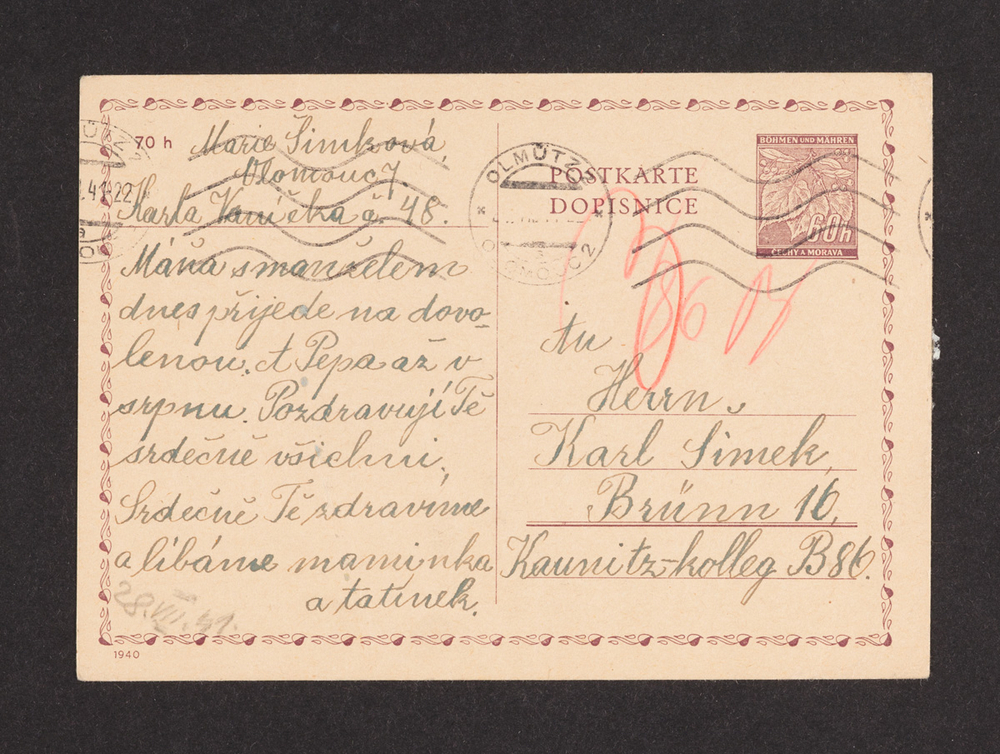 70 h
Marie Šimková,
Olomouc 7
Karla Vaníčka č. 48.
Máňa s manželem
dnes přijede na dovo-
lenou. A Pepa až v
srpnu. Pozdravují Tě
srdečně všichni.
Srdečně Tě zdravíme
a líbáme maminka
a tatínek.
28.VII.41.
1940
OLMÜTZ 2
OLOMOUC 2
POSTKARTE
DOPISNICE
BÖHMEN UND MÄHREN
60h
ČECHY A MORAVA
B86
An
Herrn
Karl Šimek,
Brünn 16,
Kaunitz-kolleg B86.